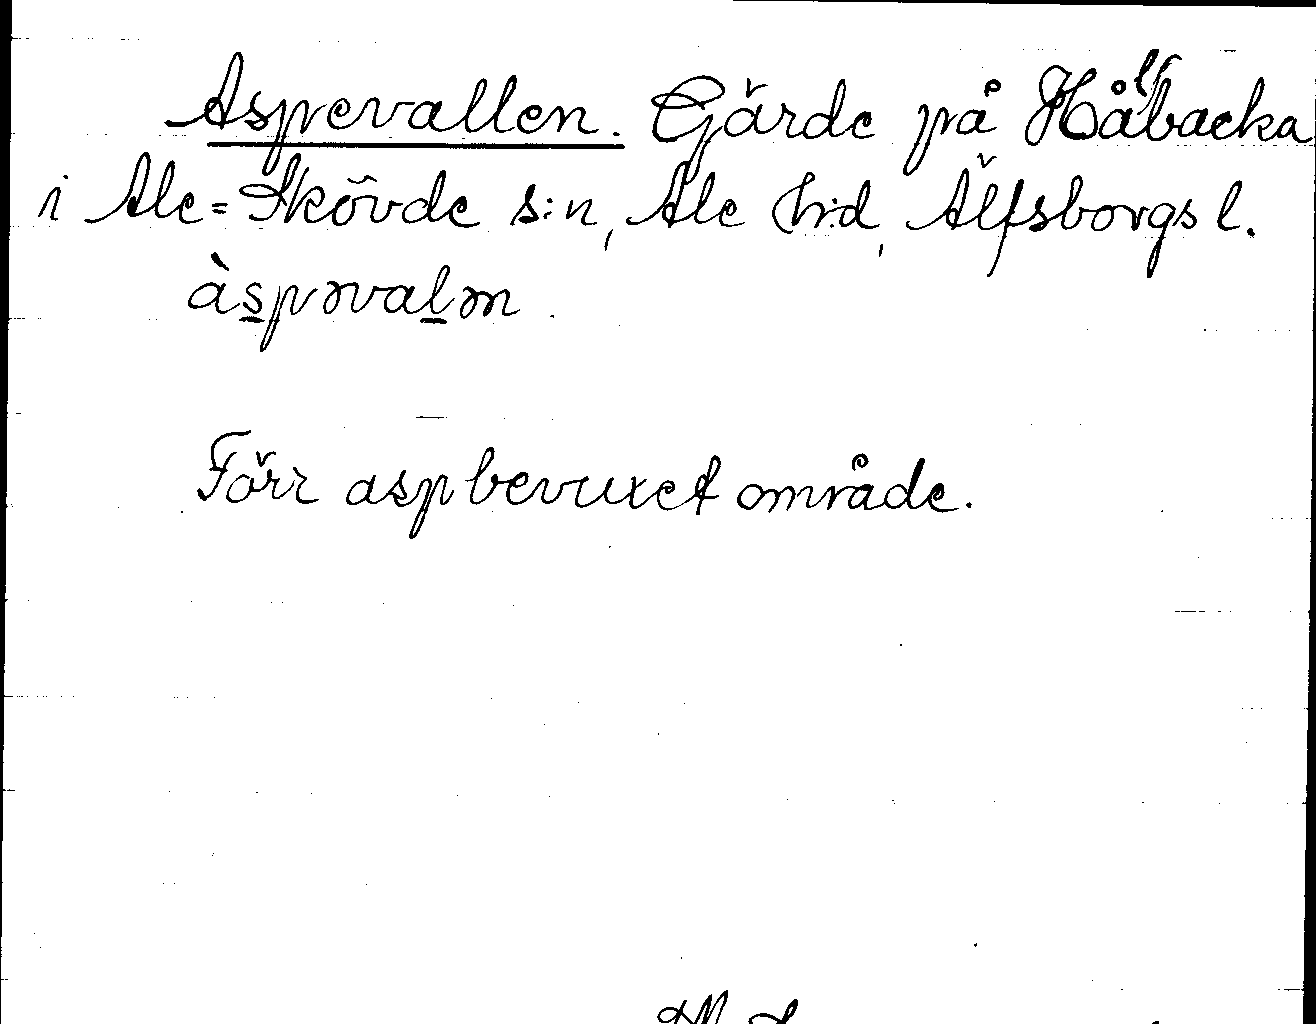 Aspevallen. Gärde på Hålfbacka
i Ale=Skövde s:n, Ale h:d, Älfsborgs l.
àspəvalən.
Förr aspbevuxet område.